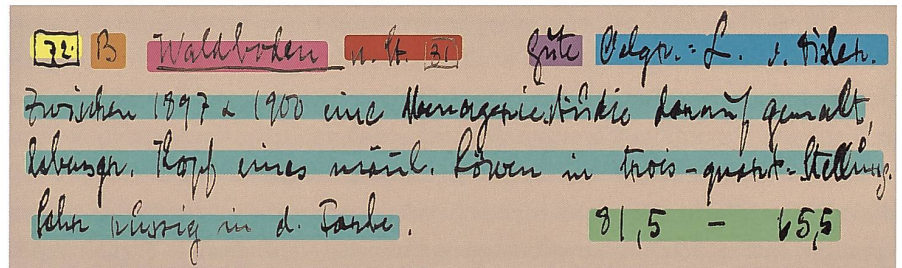 72. B Waldboden u. St. 31 Gute Oelgr.: L. v. Tisler.
Zwischen 1897 & 1900 eine Menageriestudie darauf gemalt,
lebensgr. Kopf eines männl. Löwen in trois-quart-Stellung.
Sehr flüssig in d. Farbe. 81,5 — 65,5